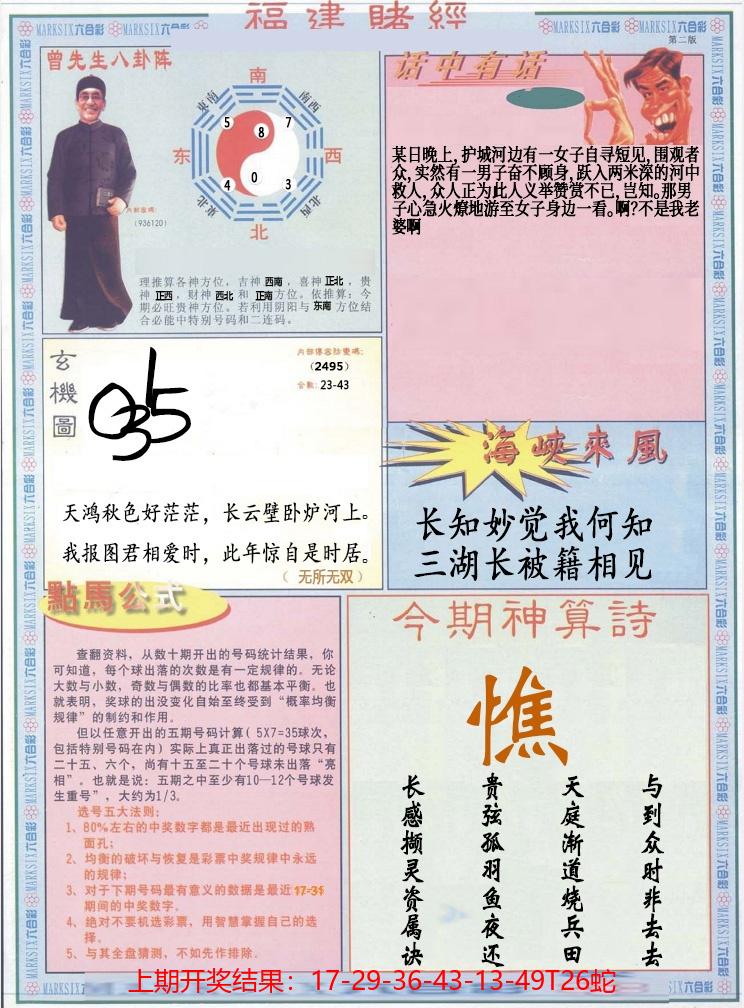 福建賭經
MARKSIX六合彩 MARKSIX六合彩 MARKSIX六合彩 MARKSIX六合彩
第二版
曾先生八卦阵
南
东南
西南
5
8
7
东
西
4
0
3
东北
西北
北
内部密碼:
(936120)
理推算各神方位，吉神 西南，喜神 正北，贵
神 正西，财神 西北 和 正南方位。依推算：今
期必旺贵神方位。若利用阴阳与 东南 方位结
合必能中特别号码和二连码。
话中有话
某日晚上,护城河边有一女子自寻短见,围观者
众,实然有一男子奋不顾身,跃入两米深的河中
救人,众人正为此人义举赞赏不已,岂知。那男
子心急火燎地游至女子身边一看。啊?不是我老
婆啊
玄機圖
035
(2495)
合数: 23-43
天鸿秋色好茫茫，长云壁卧炉河上。
我报图君相爱时，此年惊自是时居。
（ 无所无双 ）
海峽來風
长知妙觉我何知
三湖长被籍相见
點馬公式
查翻资料，从数十期开出的号码统计结果，你
可知道，每个球出落的次数是有一定规律的。无论
大数与小数，奇数与偶数的比率也都基本平衡。也
就表明，奖球的出没变化自始至终受到“概率均衡
规律”的制约和作用。
但以任意开出的五期号码计算( 5X7=35球次，
包括特别号码在内) 实际上真正出落过的号球只有
二十五、六个，尚有十五至二十个号球未出落“亮
相”。也就是说：五期之中至少有10—12个号球发
生重号”，大约为1/3。
选号五大法则：
1、80%左右的中奖数字都是最近出现过的熟
面孔；
2、均衡的破坏与恢复是彩票中奖规律中永远
的规律；
3、对于下期号码最有意义的数据是最近 17-35
期间的中奖数字。
4、绝对不要机选彩票，用智慧掌握自己的选
择。
5、与其全盘猜测，不如先作排除．
今期神算詩
憔
与到众时非去去
天庭渐道烧兵田
贵弦孤羽鱼夜还
长感撷灵资属诀
上期开奖结果：17-29-36-43-13-49T26蛇